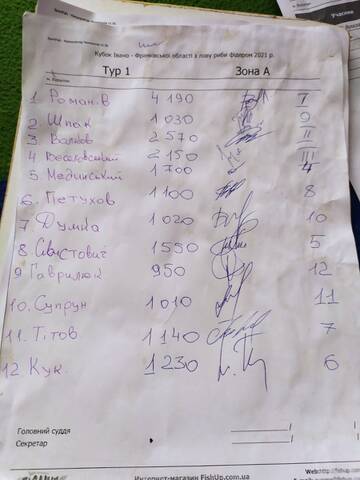 Кубок Івано - Франківської області з лову риби фідером 2021 р.
Тур 1 Зона А
1 Роман.В 4190 I
2 Шпак 1030 9
3. Волков 2570 II
4 Веселовський 2150 III
5 Мединський 1700 4
6. Петухов 1100 8
7 Думка 1020 10
8. Свистович 1550 5
9 Гаврилюк 950 12
10. Супрун 1010 11
11. Тітов 1140 7
12 Кук. 1230 6
Головний суддя
Секретар
Интернет-магазин FishUp.com.ua